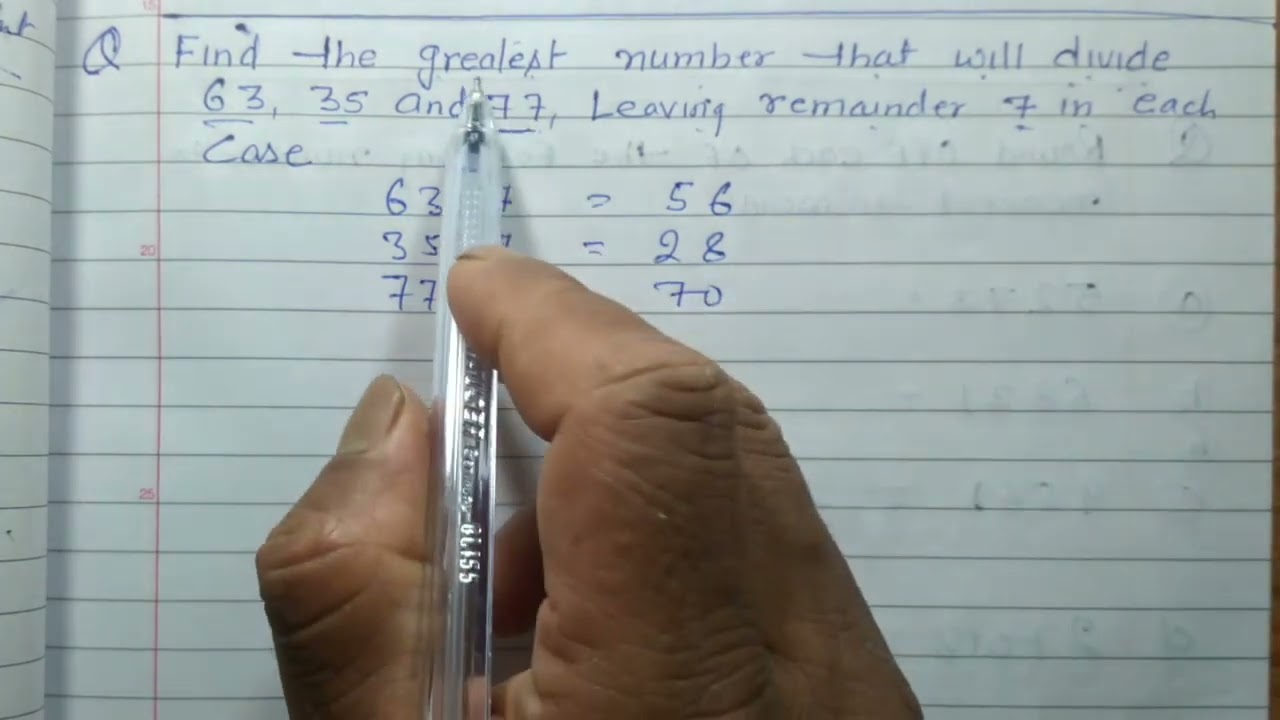 Q Find the greatest number that will divide
63, 35 and 77, Leaving remainder 7 in each
Case
63 7 = 56
35 7 = 28
77 70
20
25
BLISS